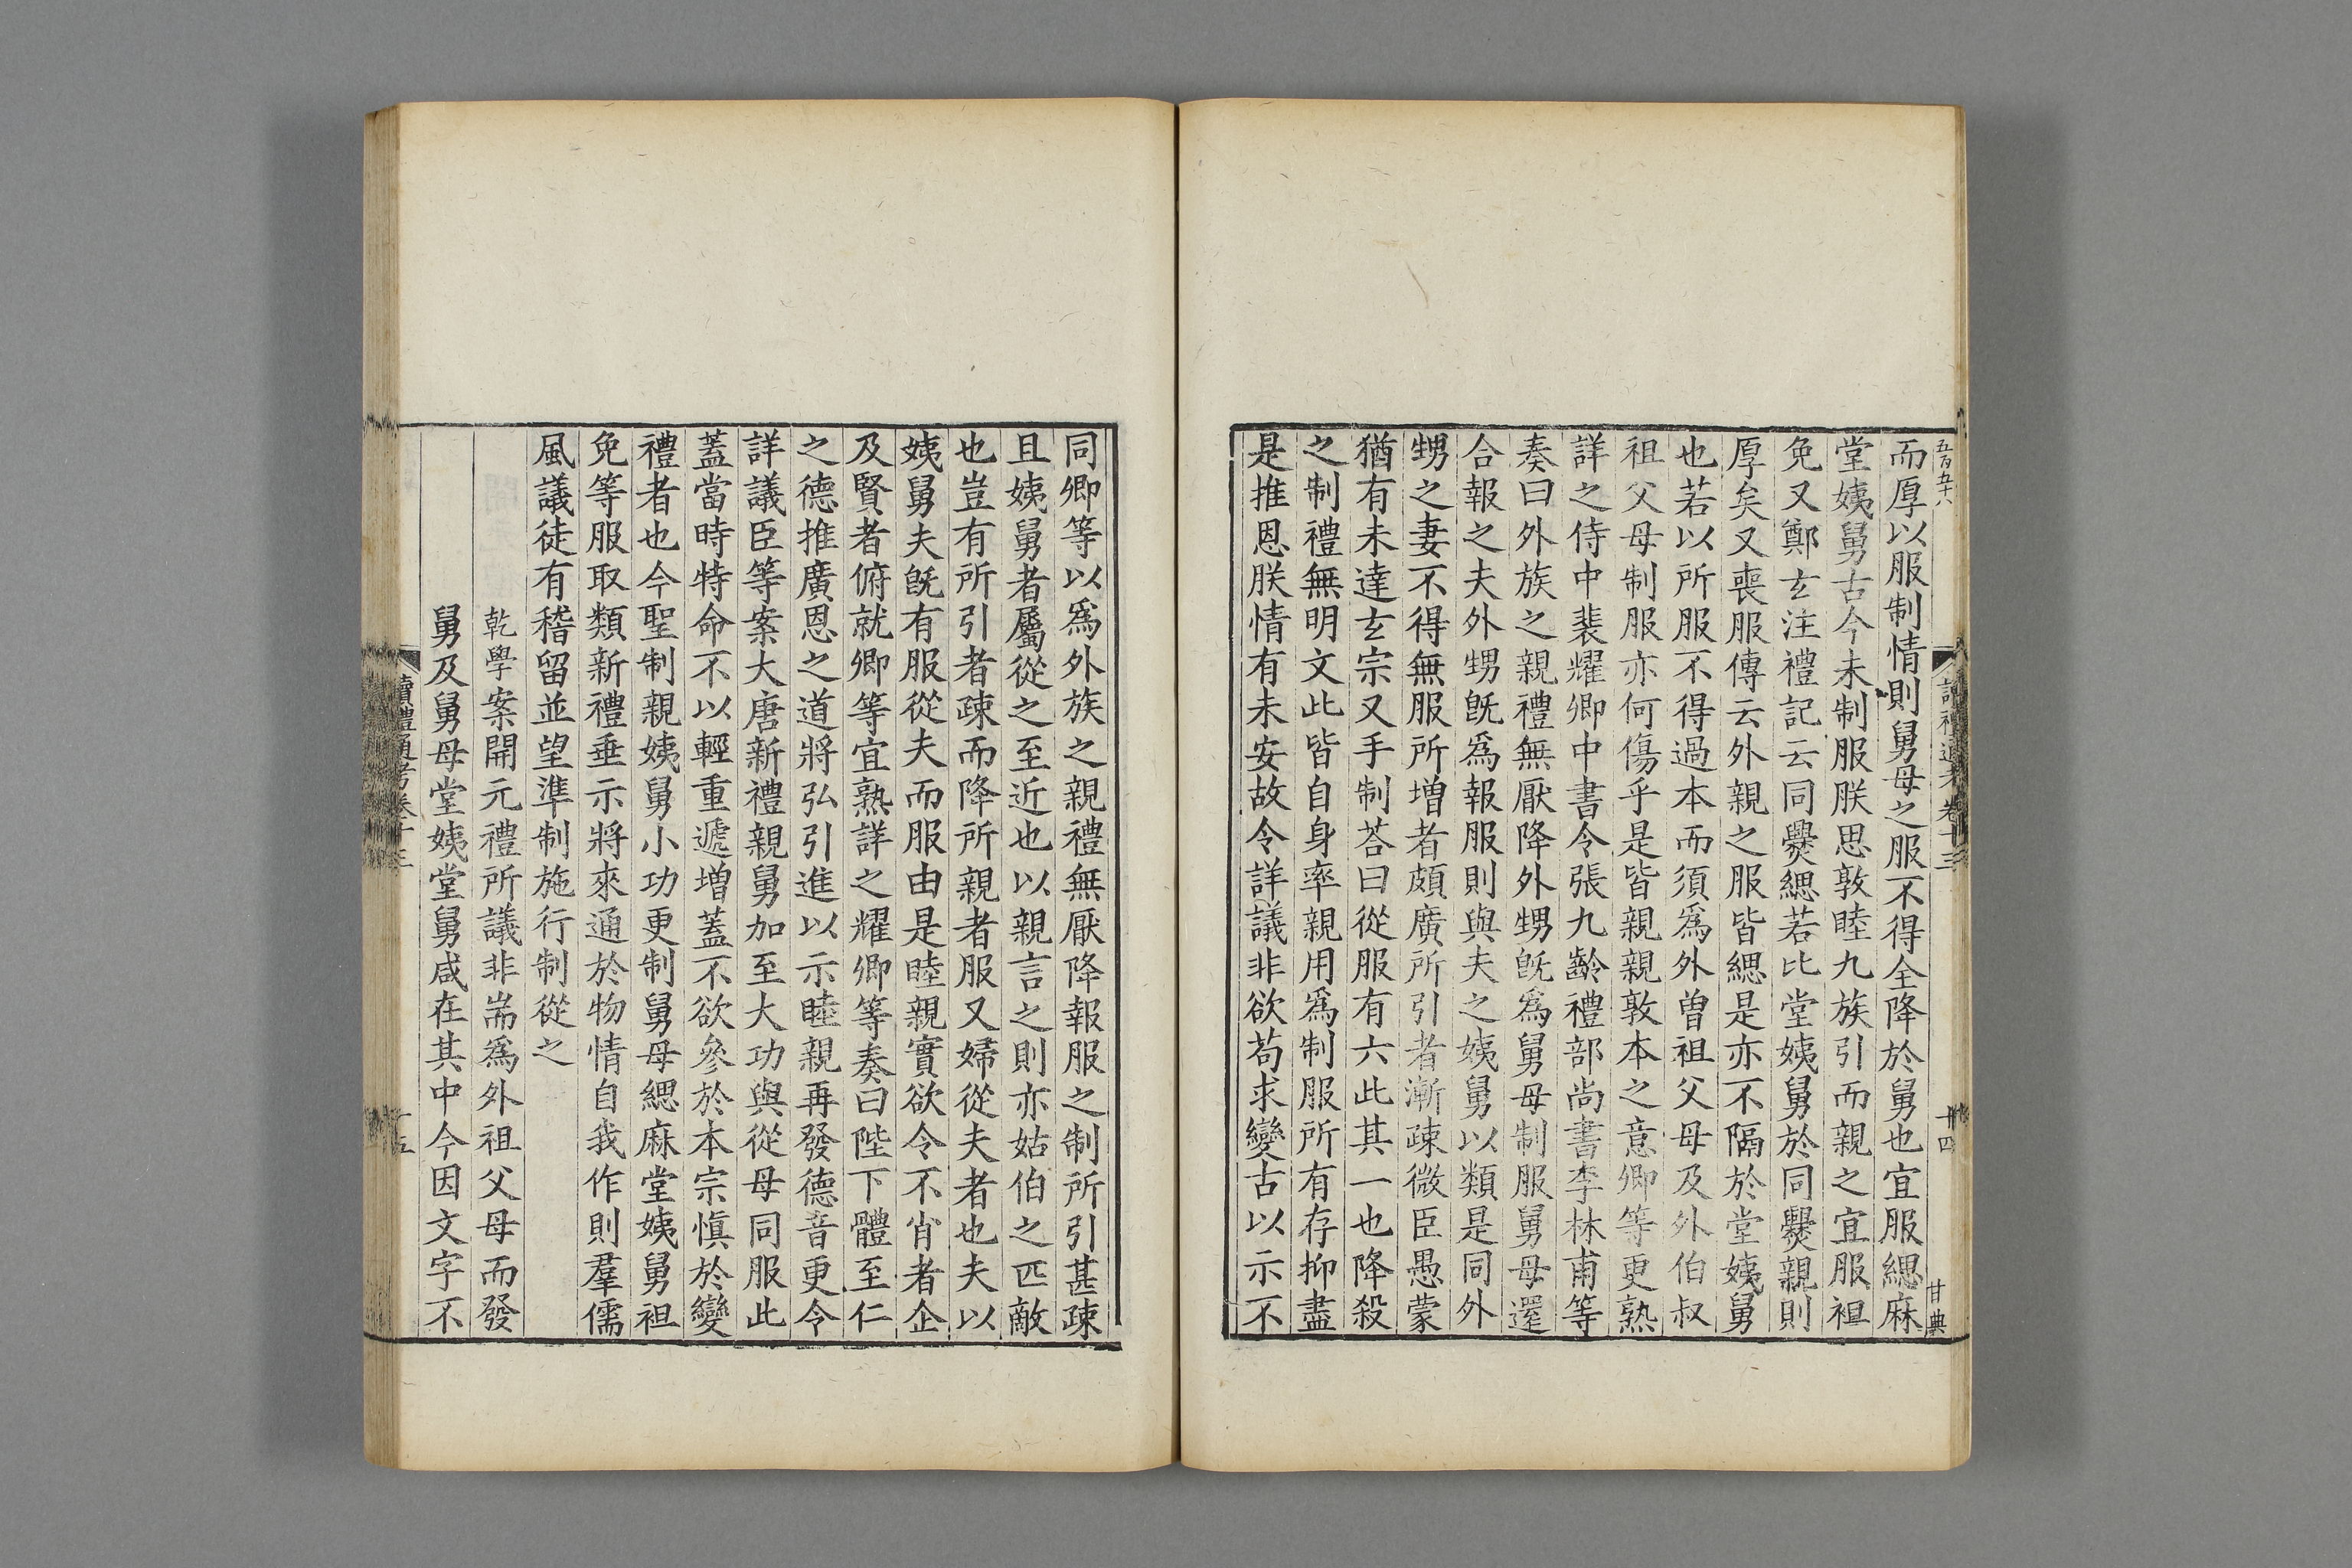 五百五十八
而厚以服制情則舅母之服不得全降於舅也宜服緦麻
堂姨舅古今未制服朕思敦睦九族引而親之宜服袒
免又鄭玄注禮記云同爨緦若比堂姨舅於同爨親則
厚矣又喪服傳云外親之服皆緦是亦不隔於堂姨舅
也若以所服不得過本而須爲外曾祖父母及外伯叔
祖父母制服亦何傷乎是皆親親敦本之意卿等更熟
詳之侍中裴耀卿中書令張九齡禮部尚書李林甫等
奏曰外族之親禮無厭降外甥旣爲舅母制服舅母還
合報之夫外甥旣爲報服則與夫之姨舅以類是同外
甥之妻不得無服所增者頗廣所引者漸疎微臣愚蒙
猶有未達玄宗又手制荅曰從服有六此其一也降殺
之制禮無明文此皆自身率親用爲制服所有存抑盡
是推恩朕情有未安故令詳議非欲苟求變古以示不
同卿等以爲外族之親禮無厭降報服之制所引甚疎
且姨舅者屬從之至近也以親言之則亦姑伯之匹敵
也豈有所引者疎而降所親者服又婦從夫者也夫以
姨舅夫旣有服從夫而服由是睦親實欲令不肖者企
及賢者俯就卿等宜熟詳之耀卿等奏曰陛下體至仁
之德推廣恩之道將弘引進以示睦親再發德音更令
詳議臣等案大唐新禮親舅加至大功與從母同服此
蓋當時特命不以輕重遞增蓋不欲參於本宗愼於變
禮者也今聖制親姨舅小功更制舅母緦麻堂姨舅袒
免等服取類新禮垂示將來通於物情自我作則羣儒
風議徒有稽留並望準制施行制從之
乾學案開元禮所議非耑爲外祖父母而發
舅及舅母堂姨堂舅咸在其中今因文字不
讀禮通考卷十三